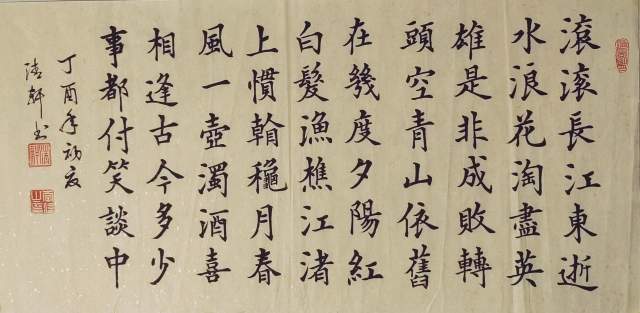 滾滾長江東逝
水浪花淘盡英
雄是非成敗轉
頭空青山依舊
在幾度夕陽紅
白髮漁樵江渚
上慣翰龝月春
風一壺濁酒喜
相逢古今多少
事都付笑談中
丁酉年初夏
軒书